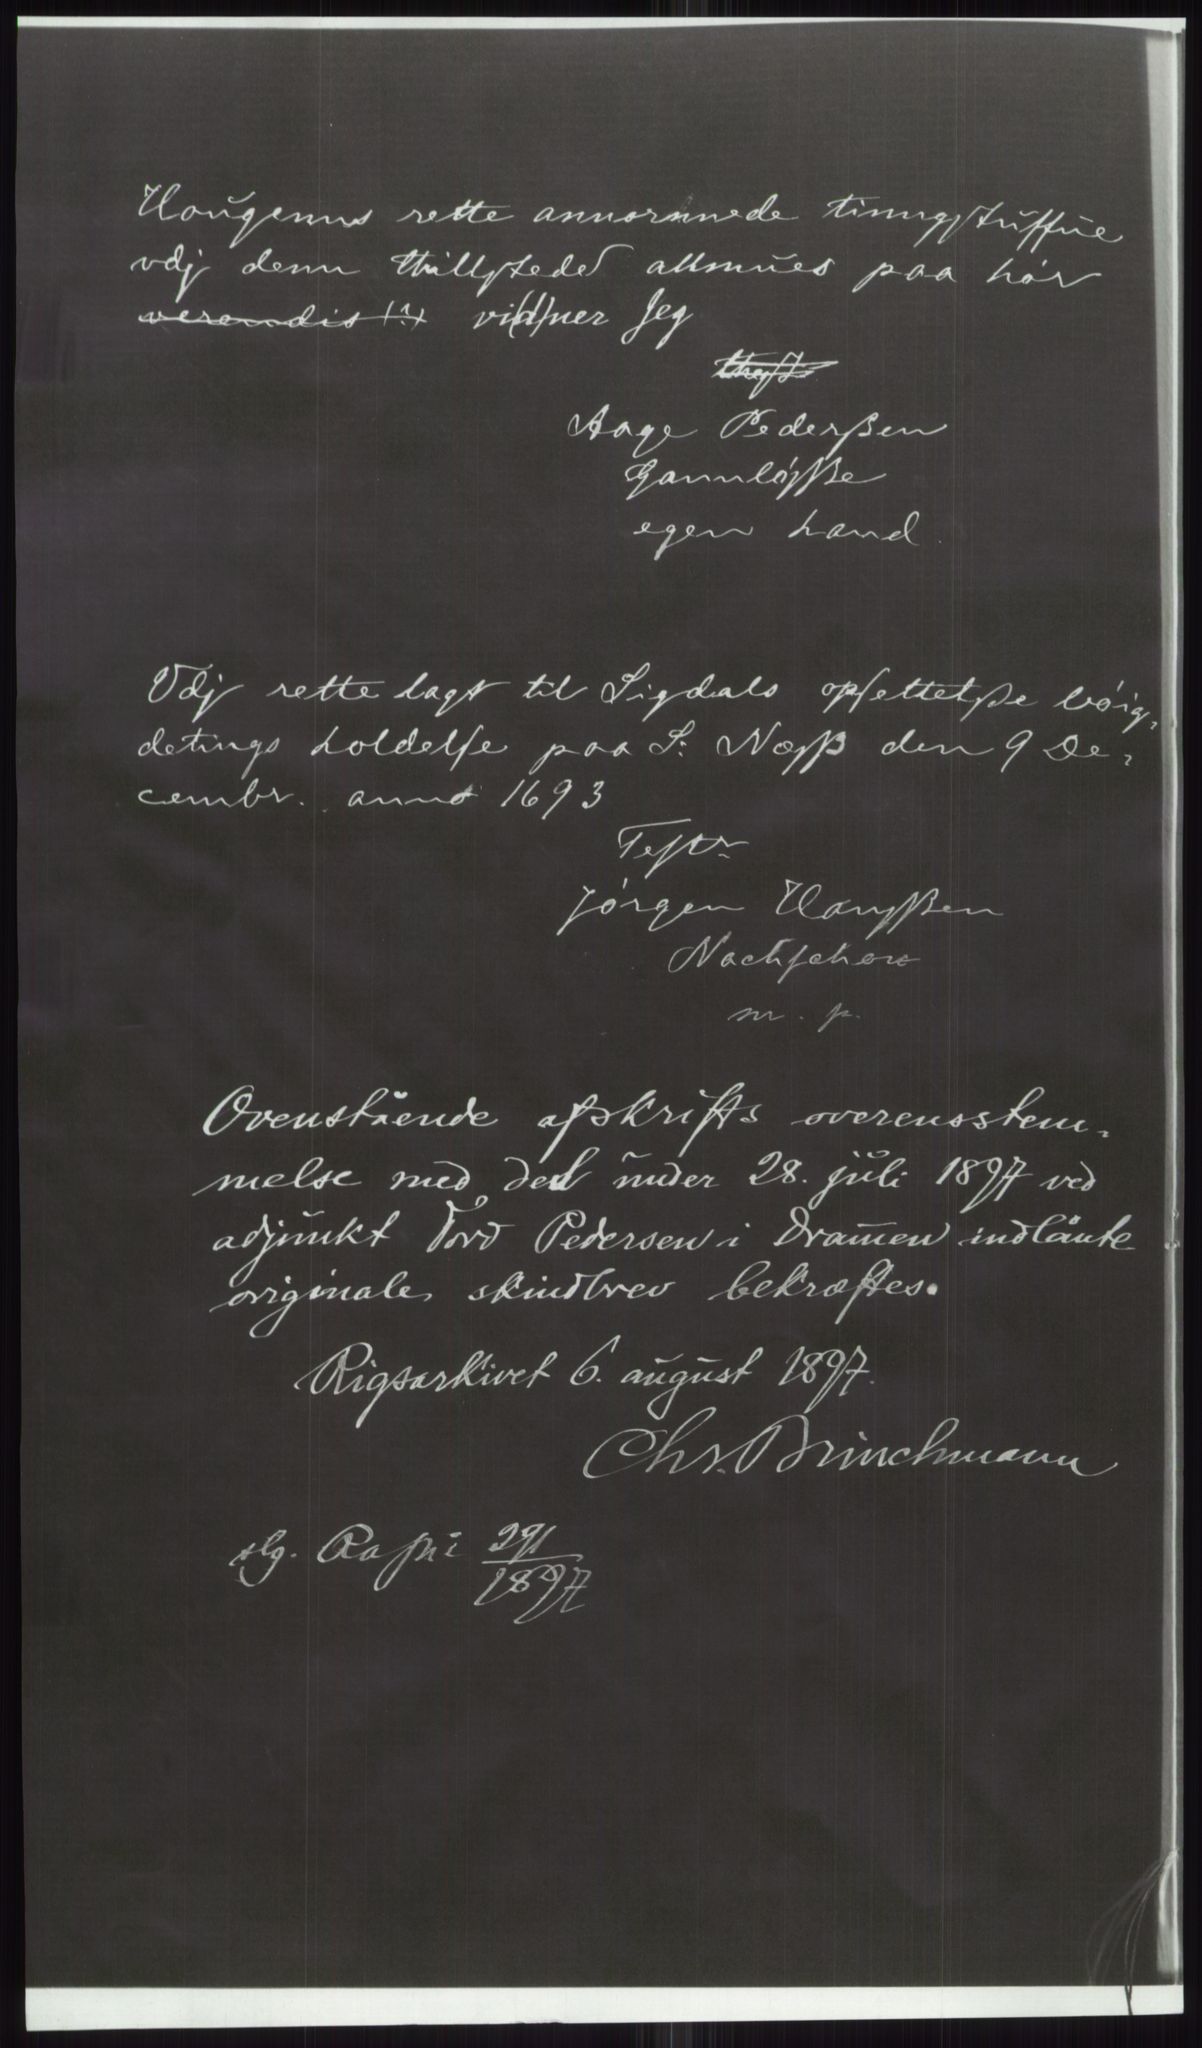 Haugenns rette annornnede tinngstuffue
vdj denn thillstede allmues paa hør
verendis (?) vi(d)ner Jeg
Aage Pederßen
Gannløsße
egen hand
Vdj rette lagt til Sigdals opsettelße bøig-
detings holdelse paa S: Næsß den 9 De-
cembr. anno 1693
Test
Jørgen Hansßen
Nachschou
m. p.
Ovenstående afskrifts overensstem-
melse med det under 28. juli 1897 ved
adjunkt Tord Pedersen i Dramen indlånte
originale skindbrev bekræftes.
Rigsarkivet 6. august 1897.
Chr. Brinchmann
291
1897